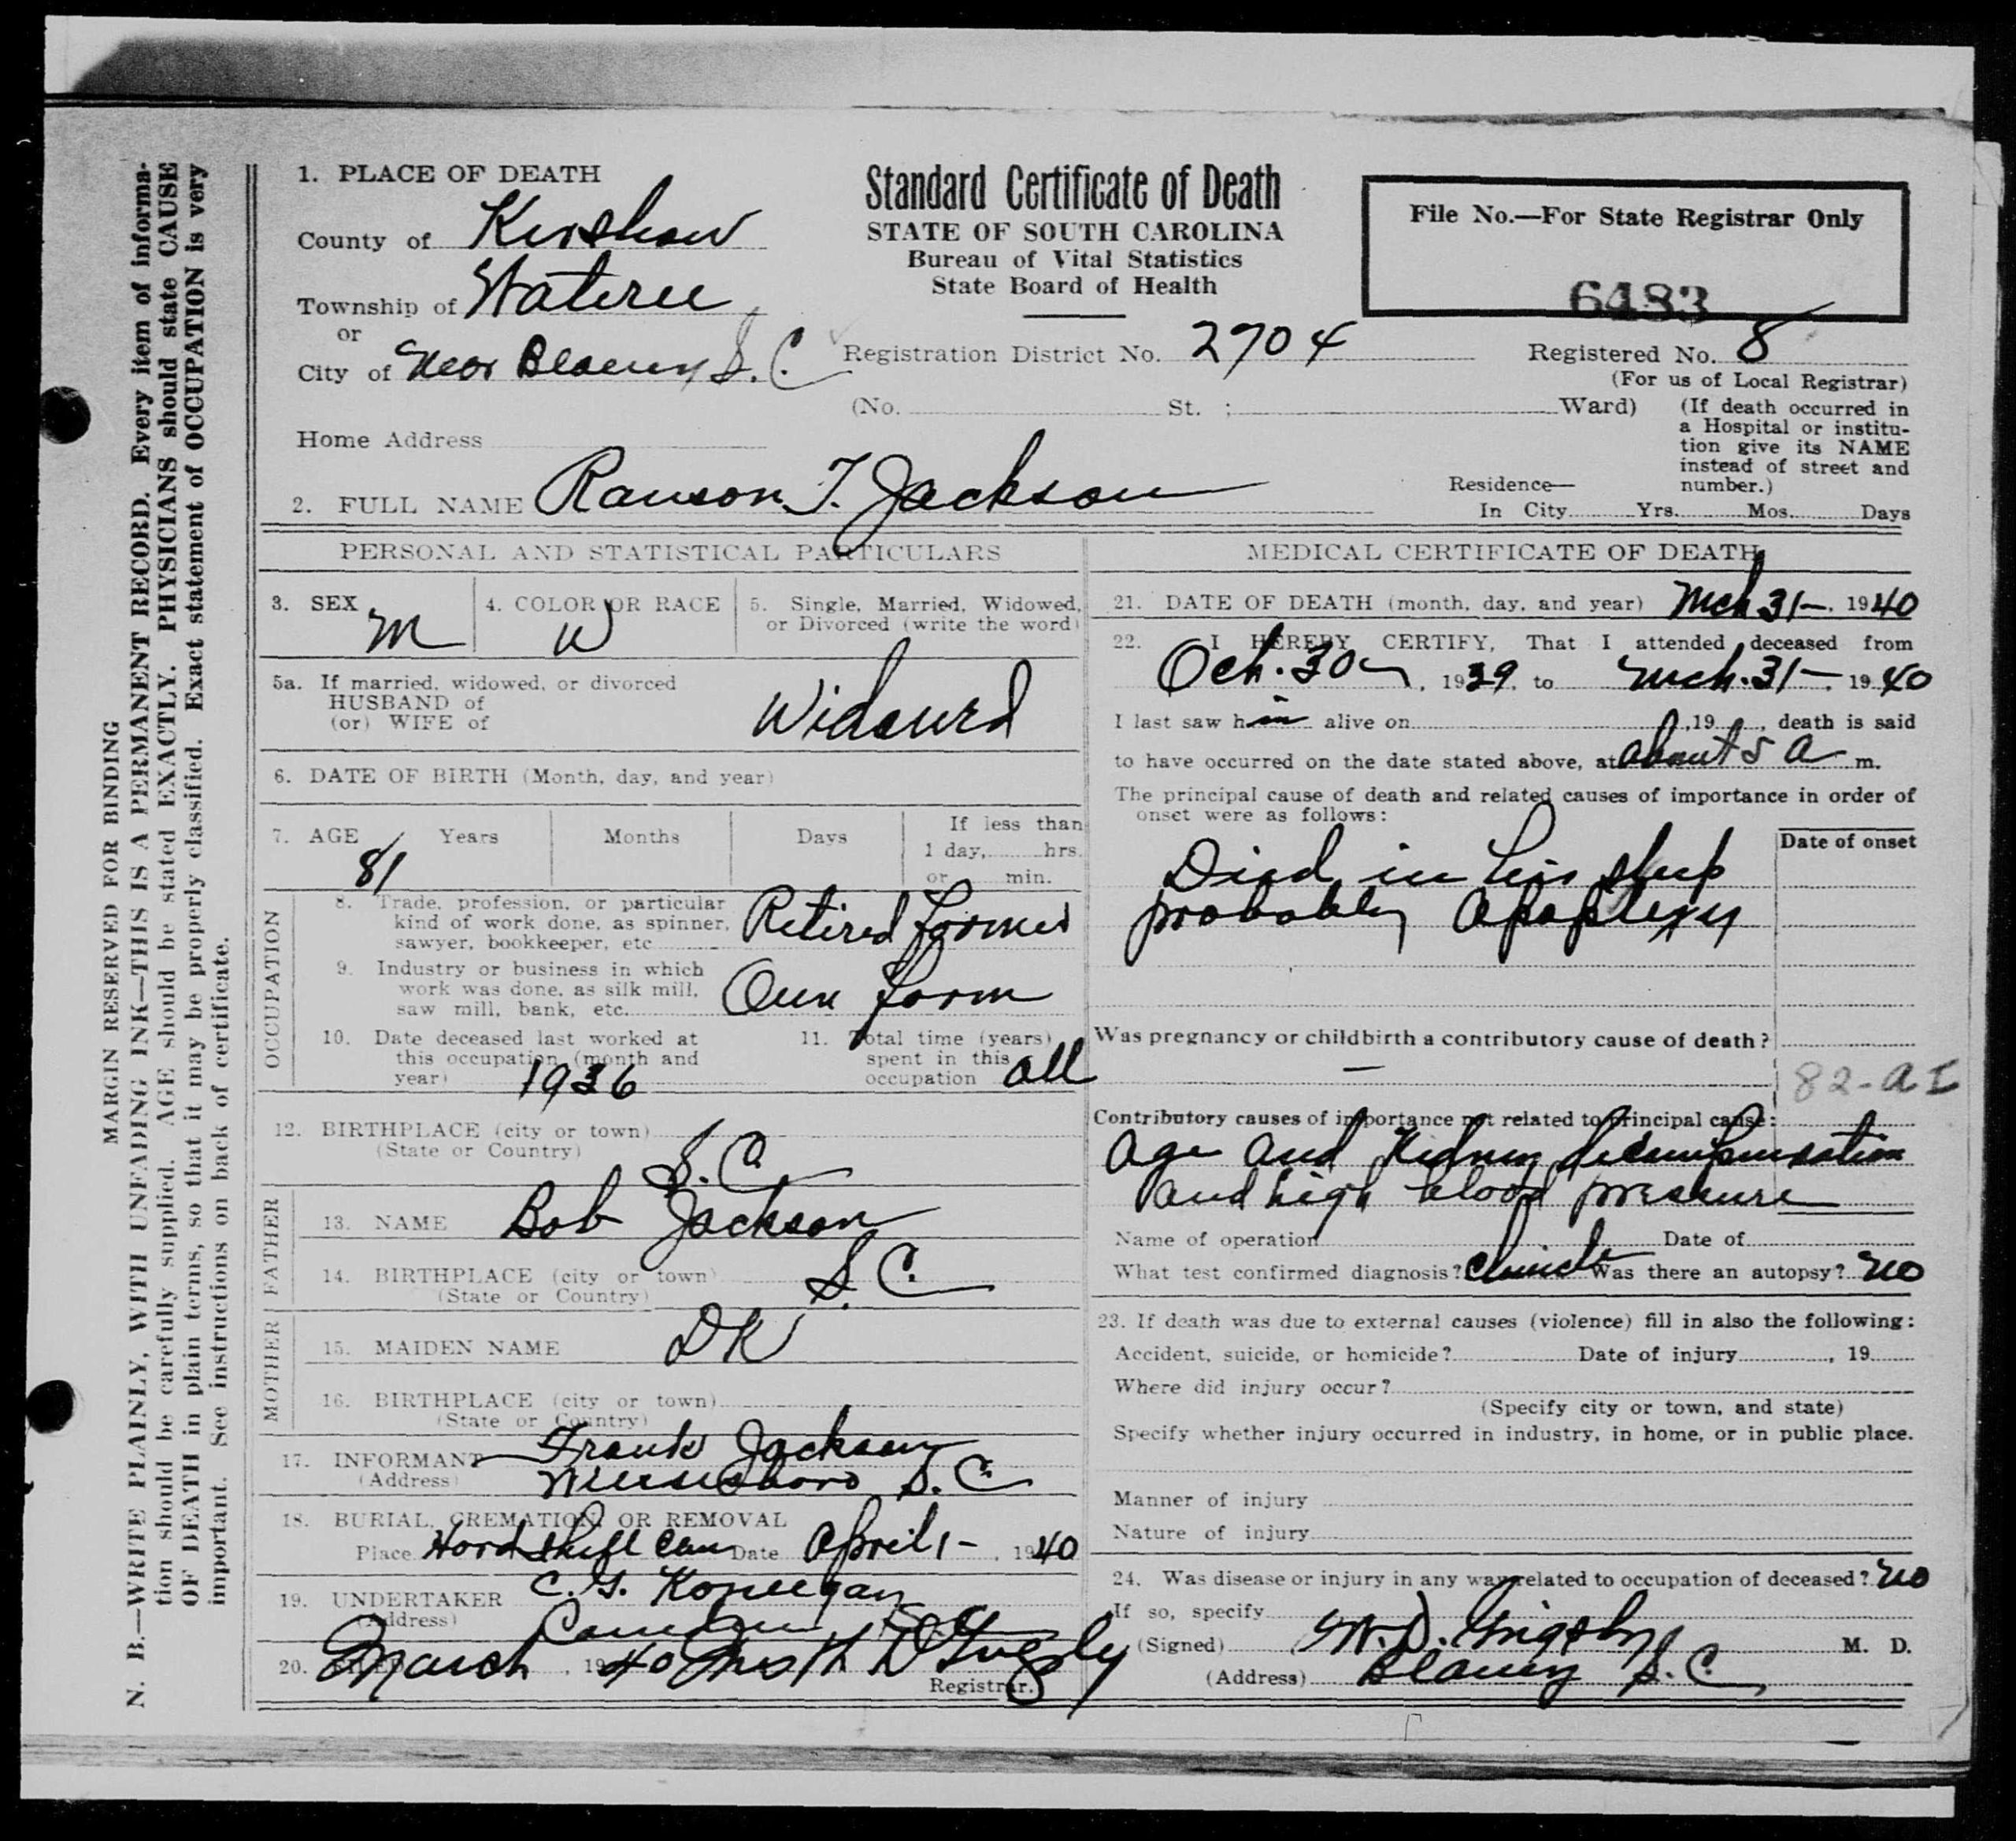 MARGIN RESERVED FOR BINDING
N. B.—WRITE PLAINLY, WITH UNFADING INK—THIS IS A PERMANENT RECORD. Every item of informa-
tion should be carefully supplied. AGE should be stated EXACTLY. PHYSICIANS should state CAUSE
OF DEATH in plain terms, so that it may be properly classified. Exact statement of OCCUPATION is very
important. See instructions on back of certificate.
Standard Certificate of Death
STATE OF SOUTH CAROLINA
Bureau of Vital Statistics
State Board of Health
File No.—For State Registrar Only
6483
1. PLACE OF DEATH
County of Kershaw
Township of Wateree
or
City of Near Blaney S. C.
Registration District No. 2704
Registered No. 8
(For us of Local Registrar)
(No. St. ; Ward)
(If death occurred in
a Hospital or institu-
tion give its NAME
instead of street and
number.)
Home Address
2. FULL NAME Ranson T. Jackson
Residence—
In City Yrs. Mos. Days
PERSONAL AND STATISTICAL PARTICULARS
3. SEX M
4. COLOR OR RACE W
5. Single, Married, Widowed,
or Divorced (write the word)
Widowed
5a. If married, widowed, or divorced
HUSBAND of
(or) WIFE of
6. DATE OF BIRTH (Month, day, and year)
7. AGE 81 Years Months Days
If less than
1 day, hrs.
or min.
OCCUPATION
8. Trade, profession, or particular
kind of work done, as spinner,
sawyer, bookkeeper, etc. Retired farmer
9. Industry or business in which
work was done, as silk mill,
saw mill, bank, etc. Own farm
10. Date deceased last worked at
this occupation (month and
year) 1936
11. Total time (years)
spent in this
occupation all
12. BIRTHPLACE (city or town)
(State or Country) S. C.
FATHER
13. NAME Bob Jackson
14. BIRTHPLACE (city or town) S. C.
(State or Country)
MOTHER
15. MAIDEN NAME DK
16. BIRTHPLACE (city or town)
(State or Country)
17. INFORMANT Frank Jackson
(Address) Winnsboro S. C.
18. BURIAL, CREMATION, OR REMOVAL
Place Cem Date April 1 - , 1940
19. UNDERTAKER C. G.
(Address) Camden, S. C.
20. FILED March , 1940 Mrs
Registrar.
MEDICAL CERTIFICATE OF DEATH
21. DATE OF DEATH (month, day, and year) Mch 31 - , 1940
22. I HEREBY CERTIFY, That I attended deceased from
Och. 30 - , 1939, to Mch. 31 - , 1940
I last saw him alive on , 19 , death is said
to have occurred on the date stated above, at about 5 A m.
The principal cause of death and related causes of importance in order of
onset were as follows:
Date of onset
Died in his sleep
probably Apoplexy
Was pregnancy or childbirth a contributory cause of death?
—
82-a I
Contributory causes of importance not related to principal cause:
Age and Kidney decompensation
and high blood pressure
Name of operation Date of
What test confirmed diagnosis? Was there an autopsy? No
23. If death was due to external causes (violence) fill in also the following:
Accident, suicide, or homicide? Date of injury , 19
Where did injury occur?
(Specify city or town, and state)
Specify whether injury occurred in industry, in home, or in public place.
Manner of injury
Nature of injury
24. Was disease or injury in any way related to occupation of deceased? No
If so, specify
(Signed) W. D. Grigsby M. D.
(Address) Blaney S. C.